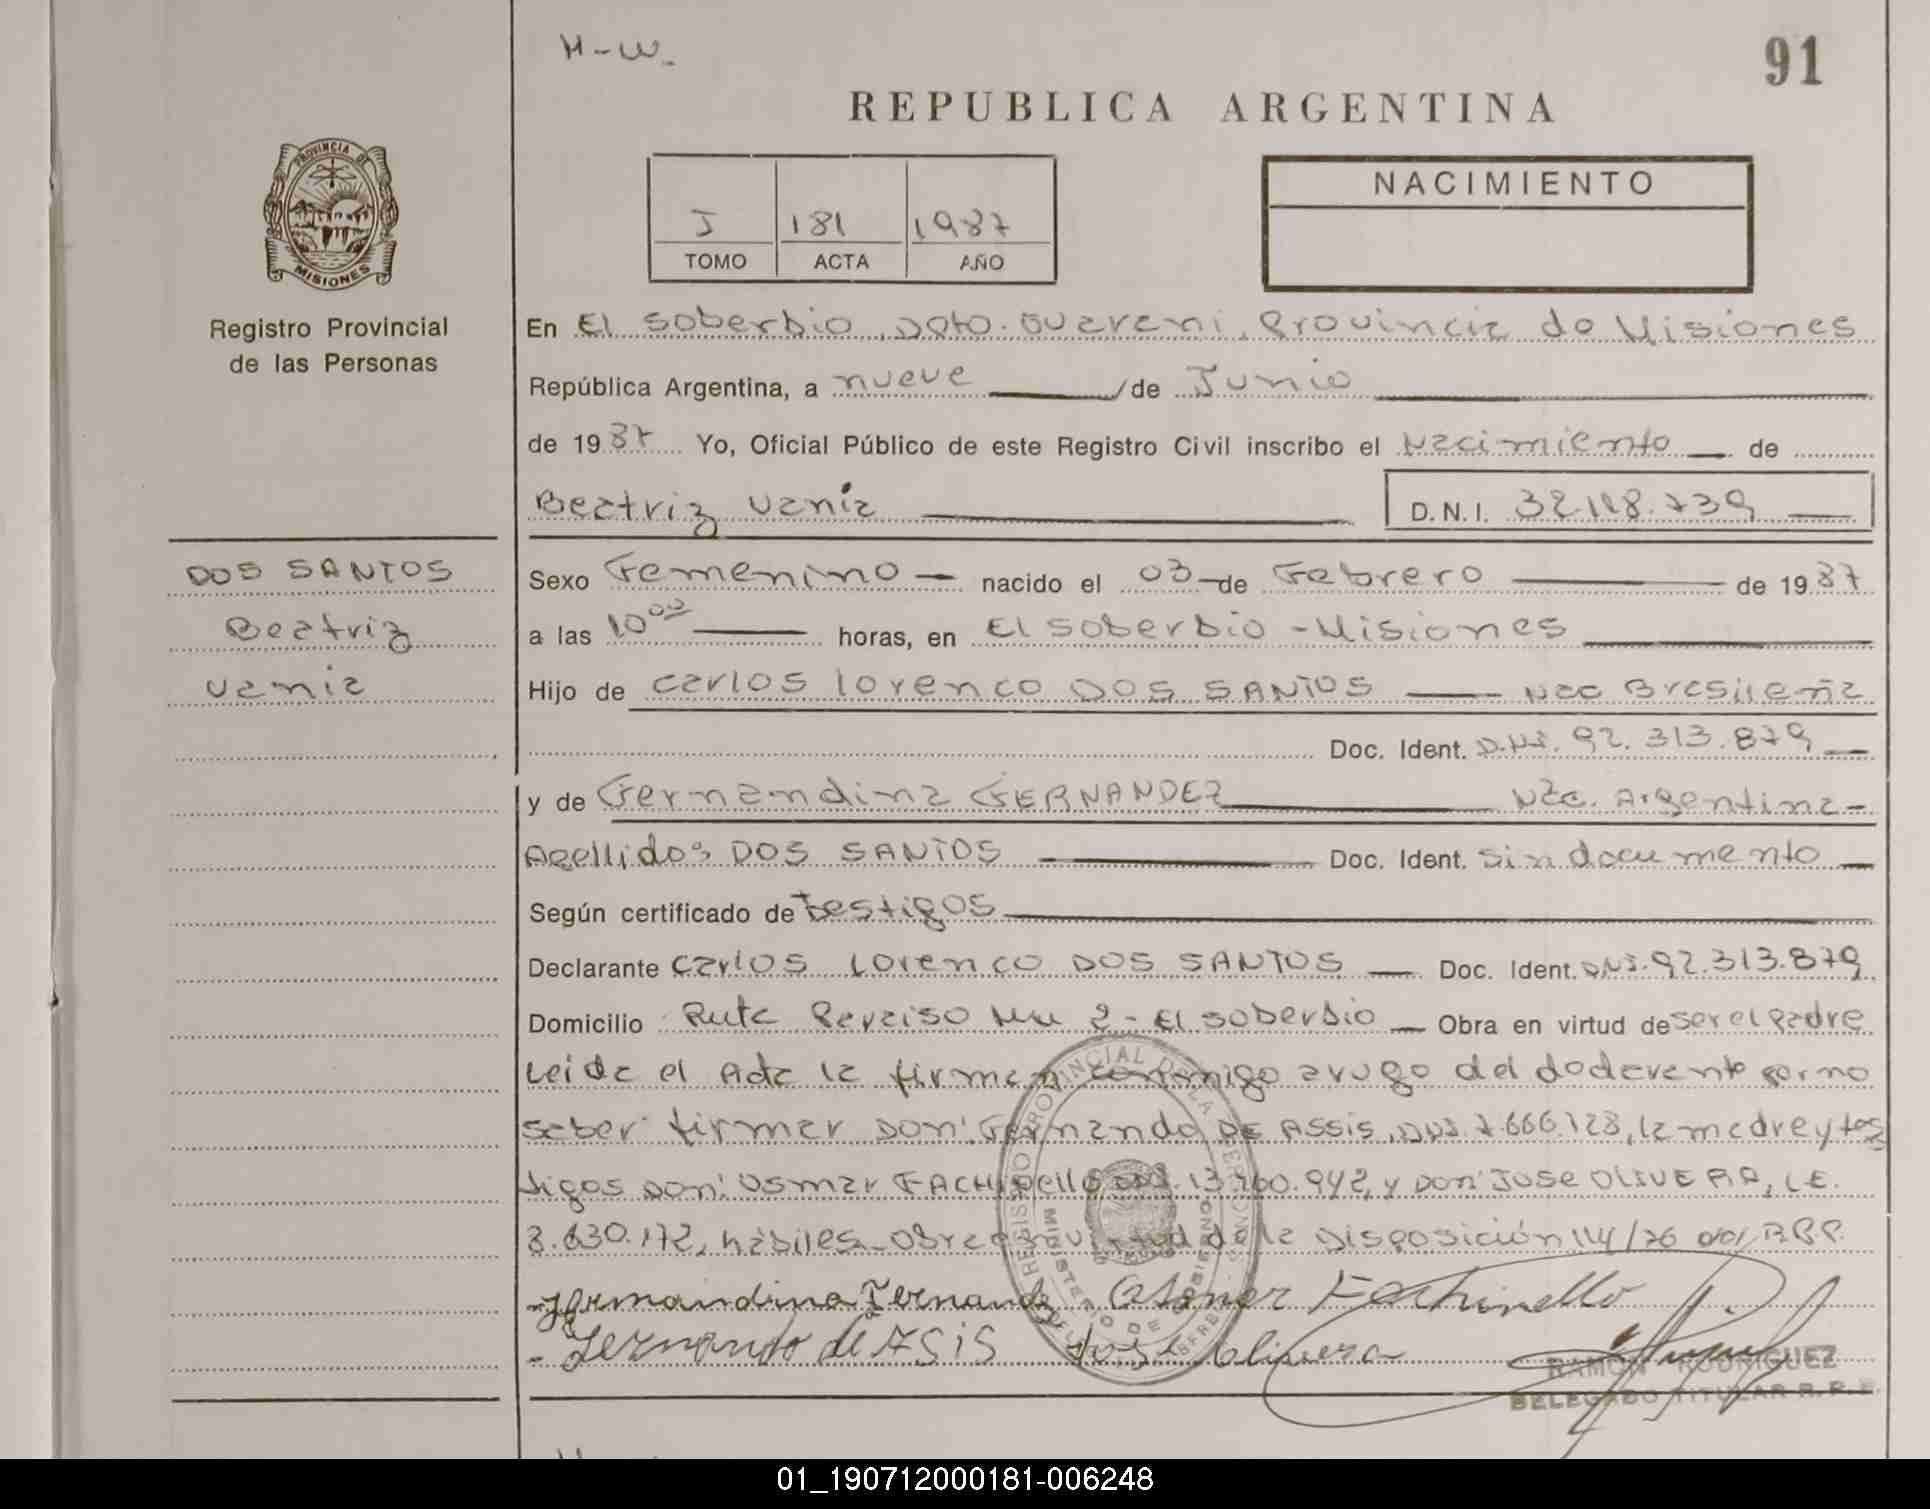 H-W.
91
REPUBLICA ARGENTINA
PROVINCIA DE
MISIONES
Registro Provincial
de las Personas
I 181 1987
TOMO ACTA AÑO
NACIMIENTO
En El Soberbio, Dpto. Guarani, Provincia de Misiones
República Argentina, a nueve /de Junio
de 1987 Yo, Oficial Público de este Registro Civil inscribo el Nacimiento de
Beatriz Vania D.N.I. 32.118.739
DOS SANTOS
Beatriz
Vania
Sexo Femenino nacido el 03 de Febrero de 1987
a las 10 00 horas, en El Soberbio - Misiones
Hijo de Carlos Lorenco DOS SANTOS Nac Brasileña
Doc. Ident. D.N.I. 92.313.879
y de Fernandina FERNANDEZ Nac. Argentina
Apellidos DOS SANTOS Doc. Ident. Sin documento
Según certificado de Testigos
Declarante Carlos Lorenco DOS SANTOS Doc. Ident. D.N.I. 92.313.879
Domicilio Ruta Paraiso Km 2 - El Soberbio Obra en virtud de ser el padre
Leida el Acta la firman conmigo a rugo del declarante por no
saber firmar Don: Fernando DE ASSIS, DNI. 7.666.128, la madre y tes
tigos Don: Osmar FACHINello DNI. 13.760.942, y Don JOSE OLIVEIRA, L.E.
3.630.172, habiles - Obra en virtud de la Disposición 114/76 del R.P.P.
Fernandina Fernandez Osmar Fachinello
Fernando de Asis Jose Olivera
RAMON RODRIGUEZ
DELEGADO TITULAR R. P. P.
REGISTRO PROVINCIAL DE LAS PERSONAS
MINISTERIO DE GOBIERNO
01_190712000181-006248